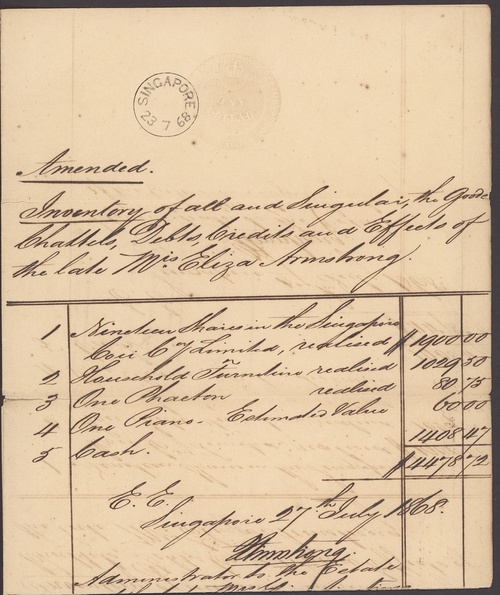 SINGAPORE
23 7 68
Amended.
Inventory of all and Singular, the Goods
Chattels, Debts, Credits and Effects of
the late Mrs Eliza Armstrong.
1 Nineteen Shares in the Singapore
Coir Coy Limited, realised $ 1900 00
2 Household Furniture realised 1029 50
3 One Phaeton realised 80 75
4 One Piano. Estimated Value 60 00
5 Cash. 1408 47
$ 4478 72
E. E.
Singapore 27th July 1868.
Armstrong.
Administrator to the Estate